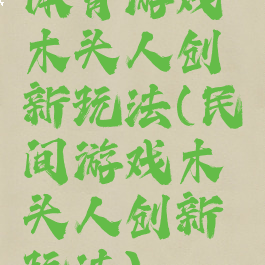 体育游戏
木头人创
新玩法(民
间游戏木
头人创新
玩法)